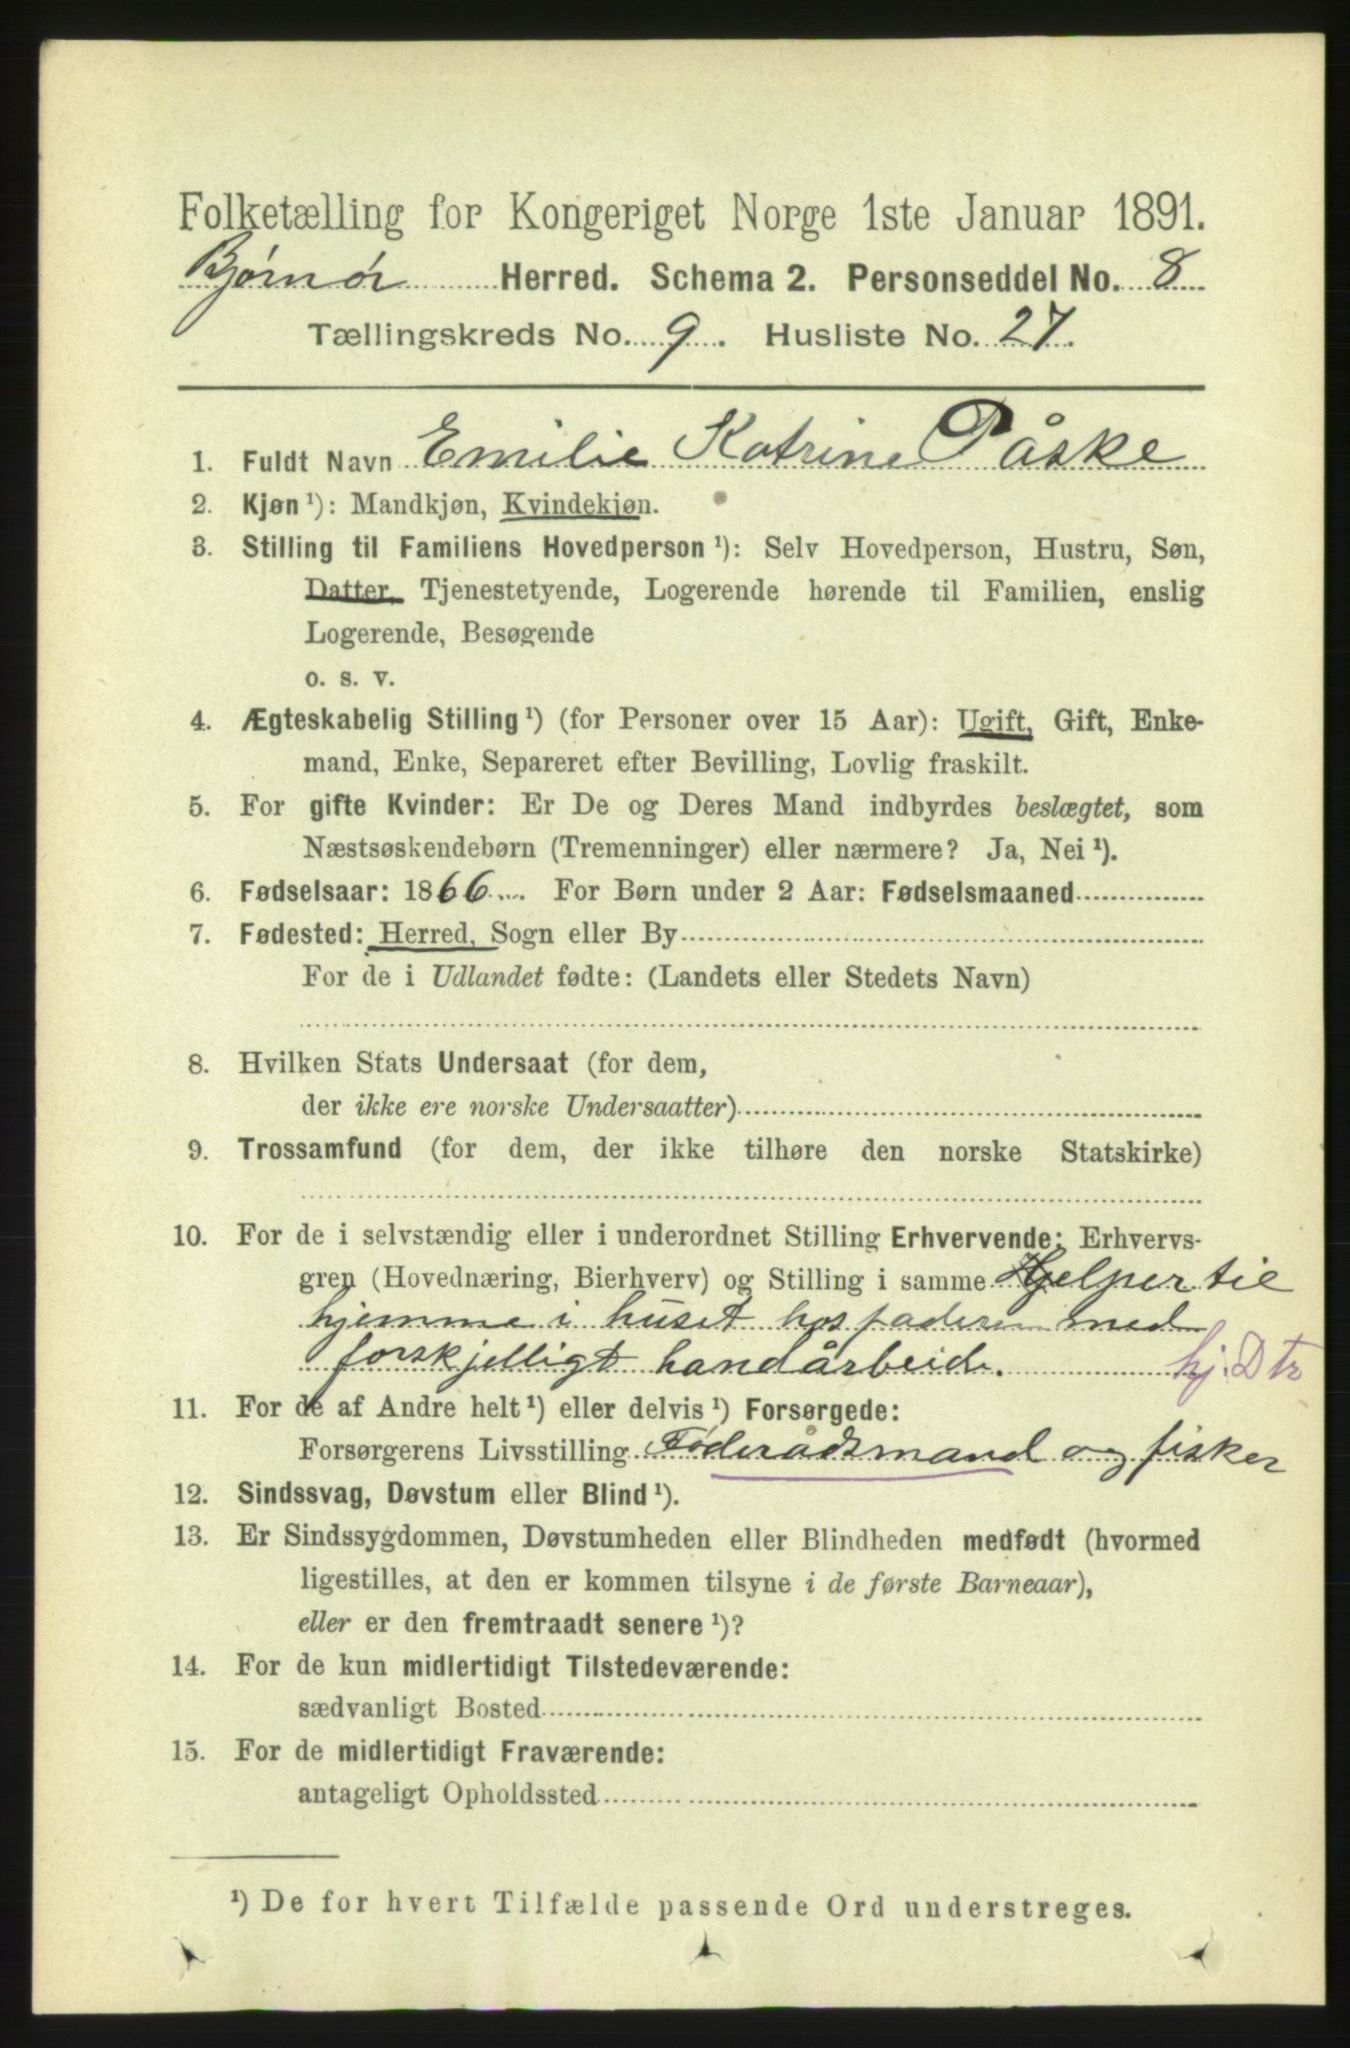 Folketælling for Kongeriget Norge 1ste Januar 1891.
Bjørnør Herred. Schema 2. Personseddel No. 8
Tællingskreds No. 9. Husliste No. 27.
1. Fuldt Navn Emilie Katrine Påske
2. Kjøn ¹): Mandkjøn, Kvindekjøn.
3. Stilling til Familiens Hovedperson ¹): Selv Hovedperson, Hustru, Søn,
Datter, Tjenestetyende, Logerende hørende til Familien, enslig
Logerende, Besøgende
o. s. v.
4. Ægteskabelig Stilling ¹) (for Personer over 15 Aar): Ugift, Gift, Enke-
mand, Enke, Separeret efter Bevilling, Lovlig fraskilt.
5. For gifte Kvinder: Er De og Deres Mand indbyrdes beslægtet, som
Næstsøskendebørn (Tremenninger) eller nærmere? Ja, Nei ¹).
6. Fødselsaar: 1866. For Børn under 2 Aar: Fødselsmaaned
7. Fødested: Herred, Sogn eller By
For de i Udlandet fødte: (Landets eller Stedets Navn)
8. Hvilken Stats Undersaat (for dem,
der ikke ere norske Undersaatter)
9. Trossamfund (for dem, der ikke tilhøre den norske Statskirke)
10. For de i selvstændig eller i underordnet Stilling Erhvervende: Erhvervs-
gren (Hovednæring, Bierhverv) og Stilling i samme Hjelper til
hjemme i huset hos faderen med
forskjelligt handårbeide. hj. Dtr
11. For de af Andre helt ¹) eller delvis ¹) Forsørgede:
Forsørgerens Livsstilling Føderådsmand og fisker
12. Sindssvag, Døvstum eller Blind ¹).
13. Er Sindssygdommen, Døvstumheden eller Blindheden medfødt (hvormed
ligestilles, at den er kommen tilsyne i de første Barneaar),
eller er den fremtraadt senere ¹)?
14. For de kun midlertidigt Tilstedeværende:
sædvanligt Bosted
15. For de midlertidigt Fraværende:
antageligt Opholdssted
¹) De for hvert Tilfælde passende Ord understreges.